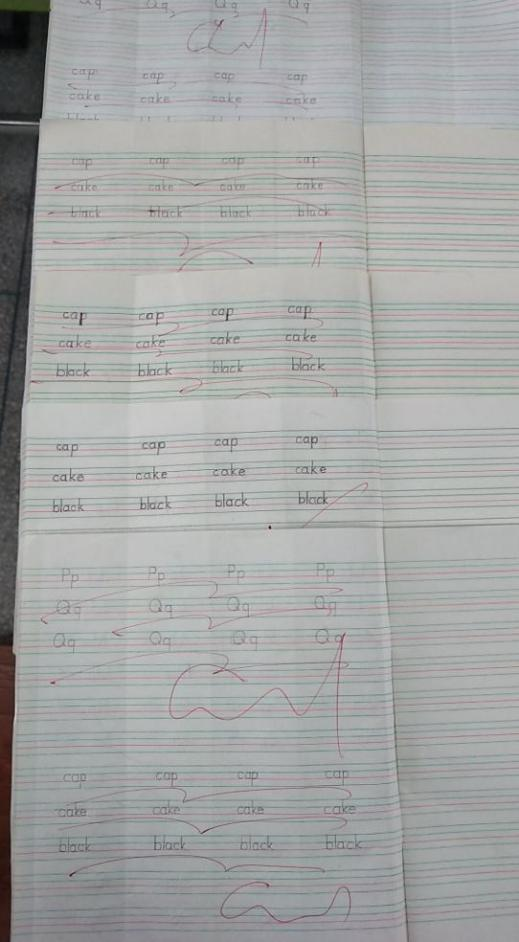 Qq Qq Qq Qq
cap cap cap cap
cake cake cake cake
cap cap cap cap
cake cake cake cake
black black black black
cap cap cap cap
cake cake cake cake
black black black black
cap cap cap cap
cake cake cake cake
black black black black
Pp Pp Pp Pp
Qq Qq Qq Qq
Qq Qq Qq Qq
cap cap cap cap
cake cake cake cake
black black black black